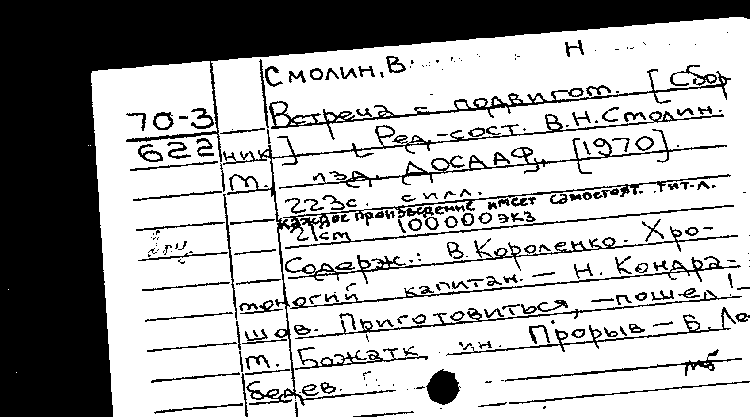 Смолин, В. Н
70-3 Встреча с подвигом. [Сбор
622 ник] Ред.-сост. В.Н.Смолин.
М., изд. ДОСААФ, [1970].
223с. с илл.
Каждое произведение имеет самостоят. тит.л.
21см 100000экз
Содерж.: В.Короленко. Хро-
моногий капитан. — Н. Кондра-
шов. Приготовиться, — пошел! —
М. Божаткин. Прорыв — В. Ле
бедев.